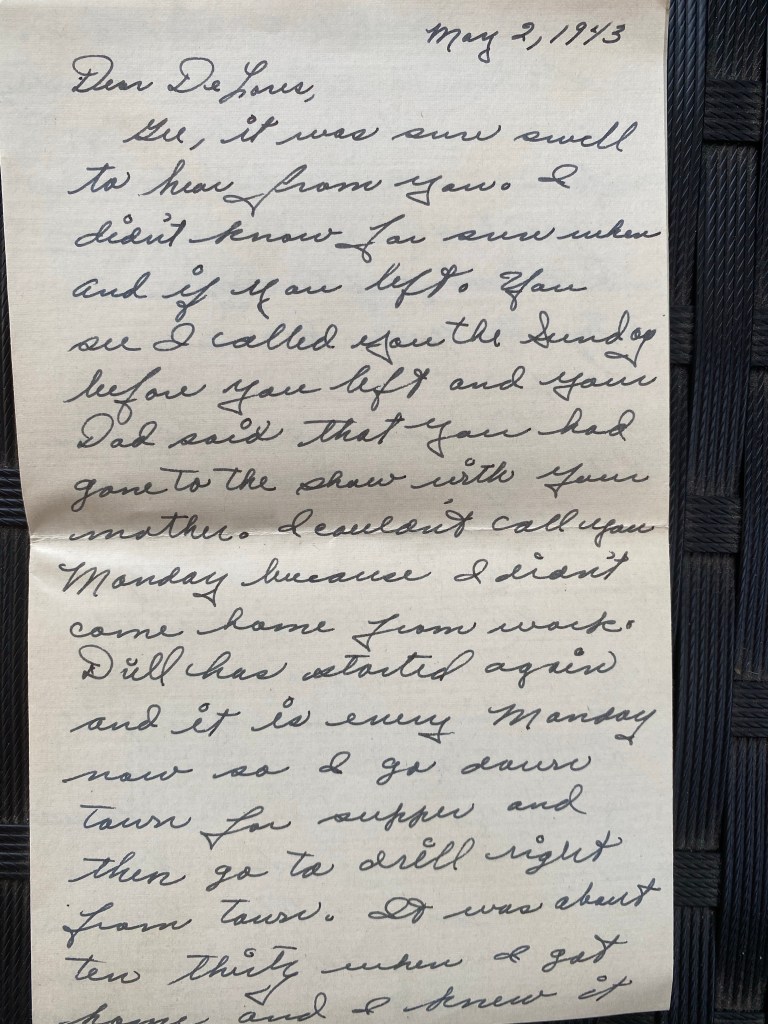 May 2, 1943
Dear De Lores,
Gee, it was sure swell
to hear from you. I
didn't know for sure when
and if you left. You
see I called you the Sunday
before you left and your
Dad said that you had
gone to the show with your
mother. I couldn't call you
Monday because I didn't
come home from work.
Drill has started again
and it is every Monday
now so I go down
town for supper and
then go to drill right
from town. It was about
ten thirty when I got
home and I knew it